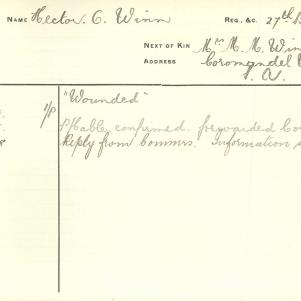 NAME Hector. C. Winn REG., &C. 27th
NEXT OF KIN Mrs M. M. Win
ADDRESS Coromandel
S. A.
1/P "Wounded"
P/Cable confirmed. forwarded
8 Reply from Commrs. Information